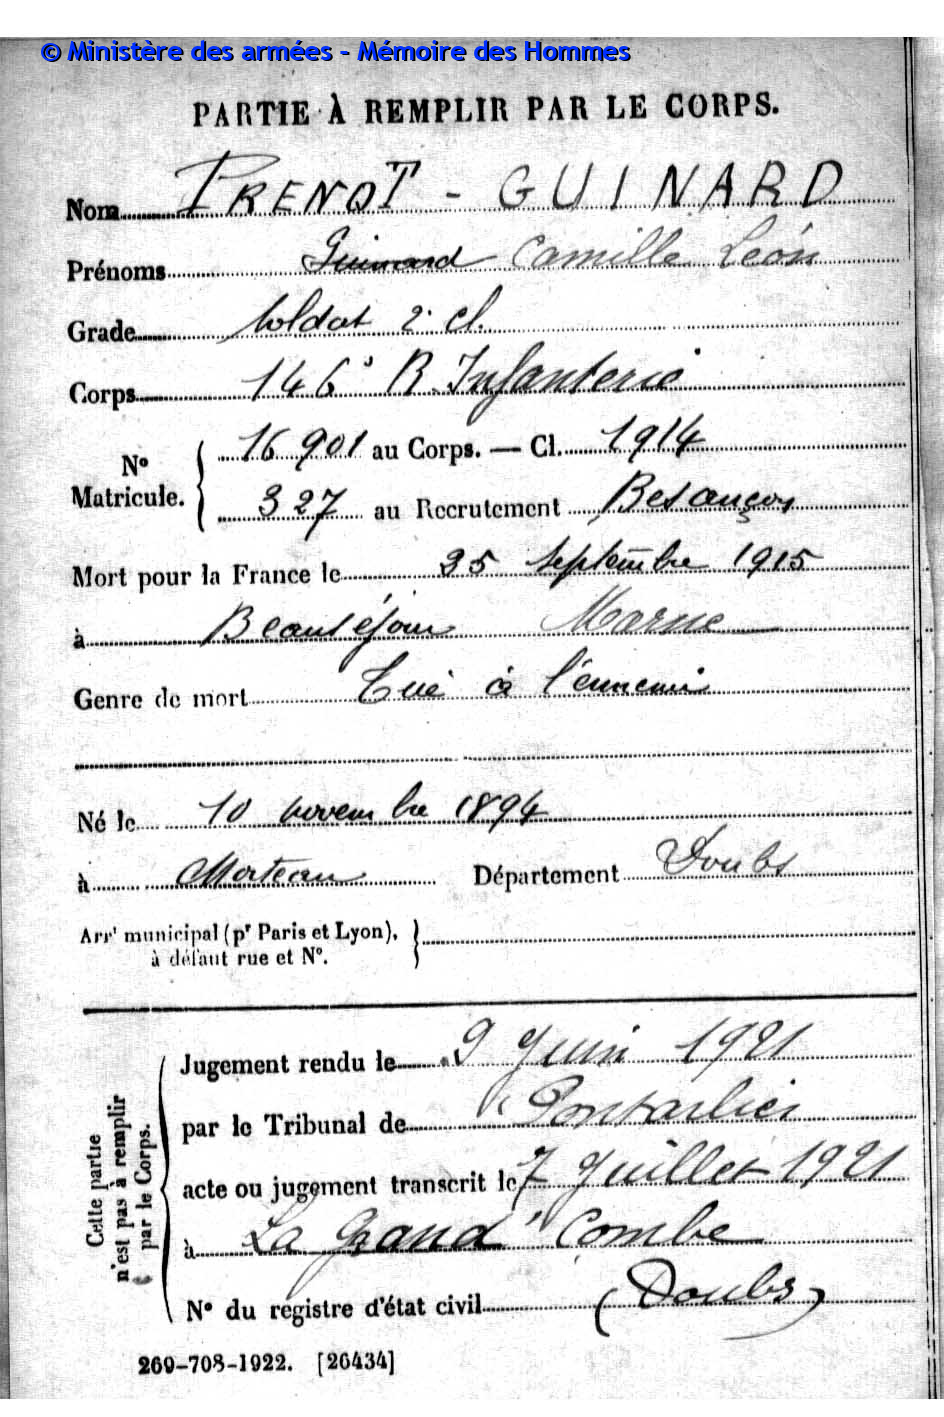 © Ministère des armées - Mémoire des Hommes
PARTIE À REMPLIR PAR LE CORPS.
Nom PRENOT - GUINARD
Prénoms Guinard Camille Léon
Grade Soldat 2e cl.
Corps 146e R. Infanterie
No Matricule. { 16 901 au Corps. — Cl. 1914
327 au Recrutement Besançon
Mort pour la France le 25 septembre 1915
à Beauséjour Marne
Genre de mort Tué à l'ennemi
Né le 10 novembre 1894
à Morteau Département Doubs
Arrt municipal (pr Paris et Lyon), }
à défaut rue et No.
Cette partie n'est pas à remplir par le Corps.
Jugement rendu le 9 Juin 1921
par le Tribunal de Pontarlier
acte ou jugement transcrit le 7 Juillet 1921
à La Grand'Combe
No du registre d'état civil (Doubs)
269-708-1922. [26434]